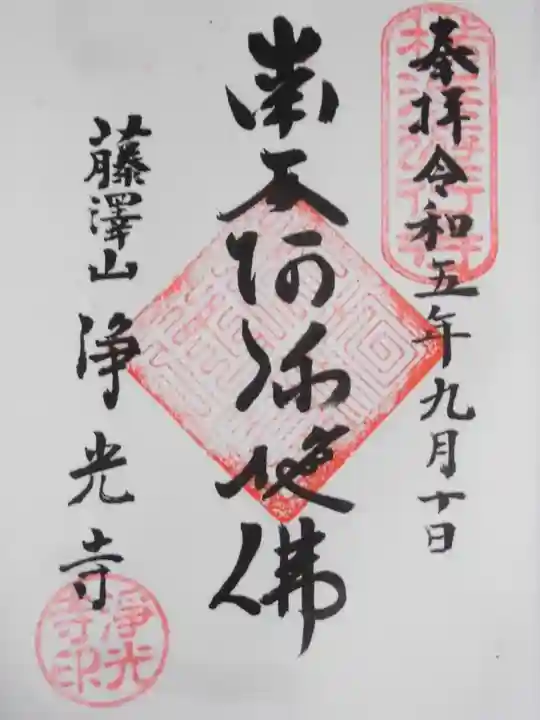 奉拝令和五年九月十日
南无阿弥陀佛
藤澤山浄光寺
浄光寺印